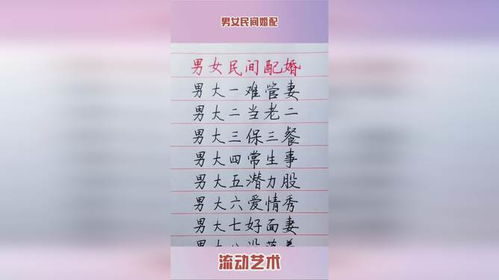 男女民间婚配
男女民间配婚
男大一难管妻
男大二当老二
男大三保三餐
男大四常生事
男大五潜力股
男大六爱情秀
男大七好面妻
流动艺术